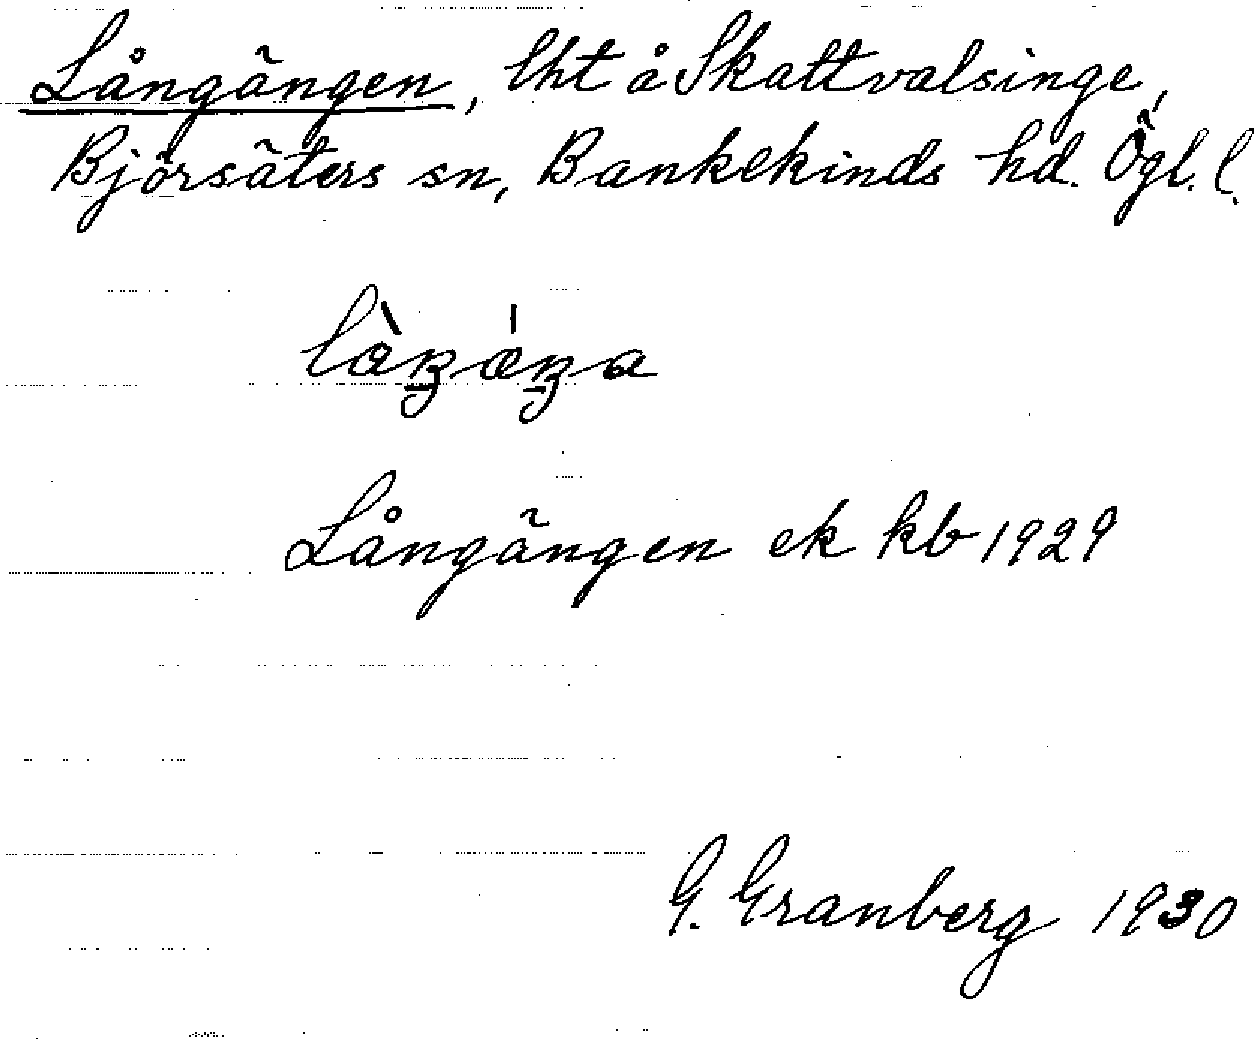 Långängen, lht å Skattvalsinge,
Björsäters sn, Bankekinds hd. Ögl. l.
Långängen ek kb 1929
G. Granberg 1930